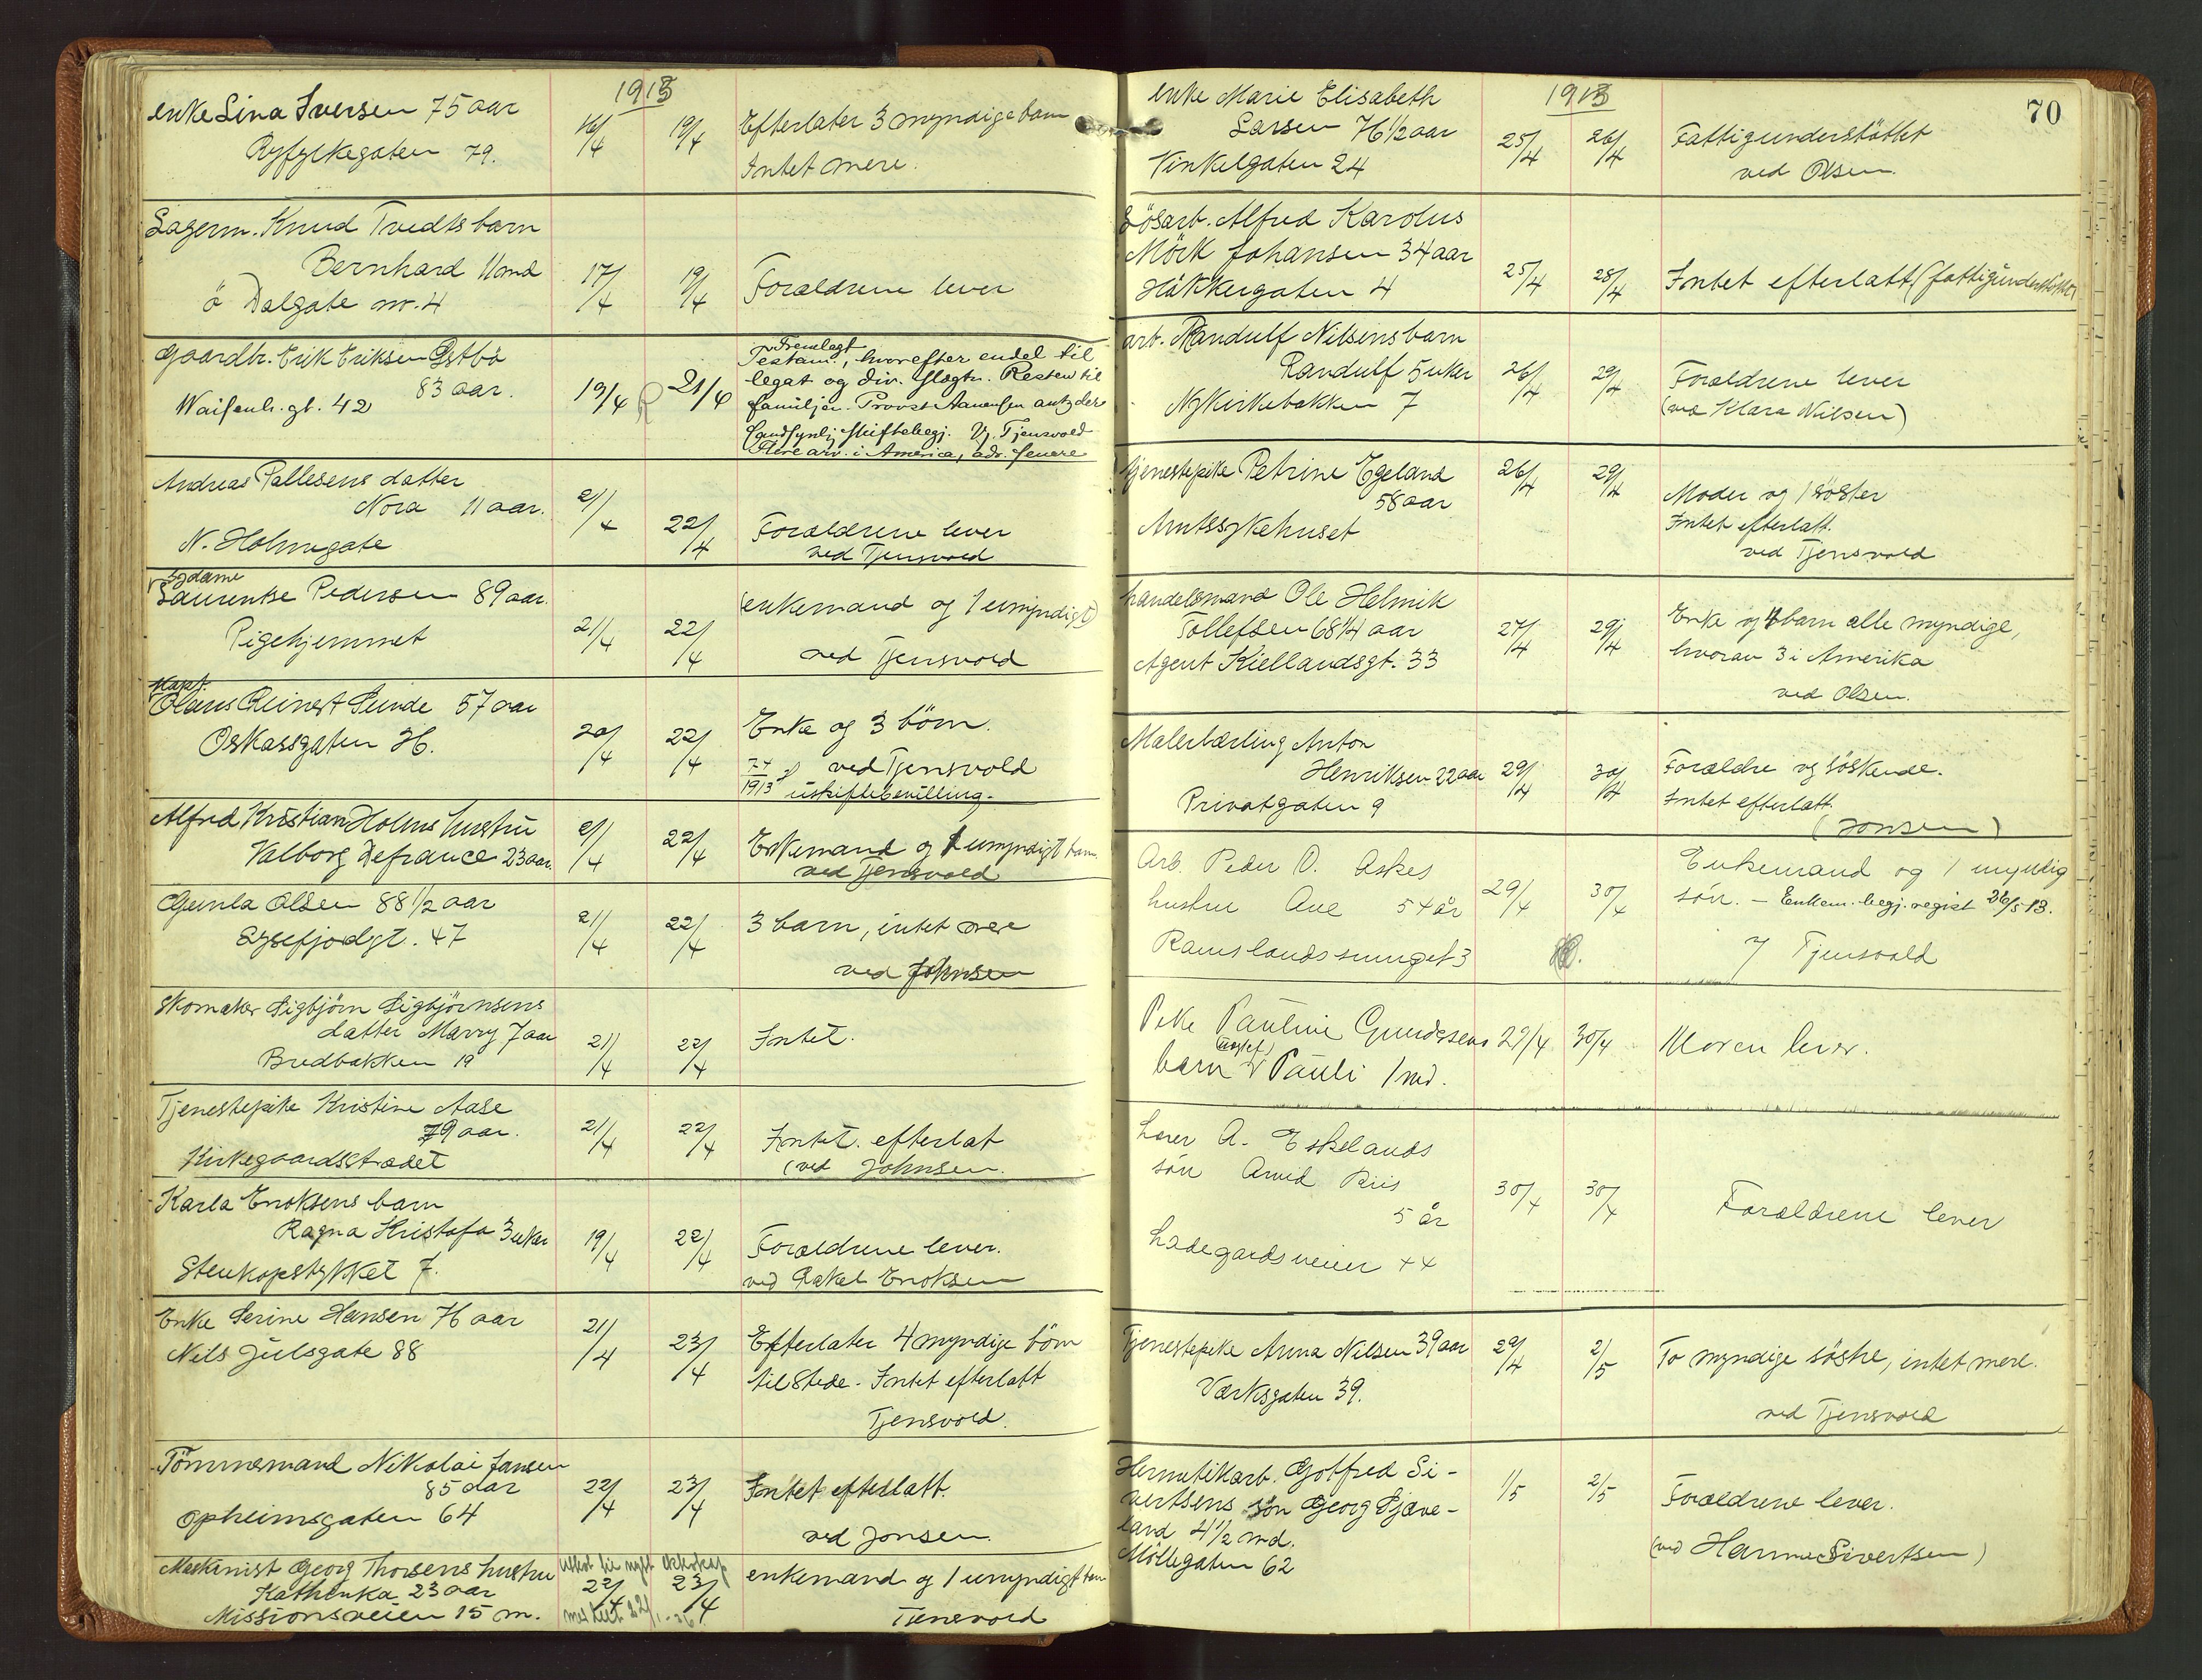 1913
enke Lina Iversen 75 aar
Ryfylkegaten 79.
16/4
19/4
Efterlater 3 myndige barn
Intet mere.
Lagerm. Knud Tvedts barn
Bernhard 11 md
ö Dalgate nr. 4
17/4
19/4
Forældrene lever
Gaardbr. Erik Eriksen Østbö
83 aar.
Waisenh. gt. 42
19/4
21/4
Fremlagt
Testam., hvorefter endel til
legat og div. slægtn. Resten til
familjen. Provst Aanensen antyder
sandsynlig skiftebegj. V. Tjensvold
Flere arv. i America, adr. senere
Andreas Pallesens datter
Nora 11 aar.
N. Holmegate
21/4
22/4
Forældrene lever
ved Tjensvold
Sydame
Laurentse Pedersen 89 aar.
Pigehjemmet
21/4
22/4
(enkemand og 1 umyndigt)
ved Tjensvold
Kapt.
Olaus Reinert Sunde 57 aar
Oskarsgaten 26.
20/4
22/4
Enke og 3 börn.
ved Tjensvold
1913 uskiftebevilling.
Alfred Kristian Holms hustru
Valborg Defrance 23 aar.
21/4
22/4
Enkemand og 1 umyndigt barn.
ved Tjensvold
Gunla Olsen 88 1/2 aar
Lysefjordgt. 47
21/4
22/4
3 barn, intet mere
ved Johnsen
Skomaker Sigbjörn Sigbjörnsens
datter Marry 7 aar
Bredbakken 19
21/4
22/4
Intet.
Tjenestepike Kristine Aase
79 aar.
Kirkegaardsstrædet
21/4
22/4
Intet efterlat
(ved Johnsen.
Karla Enoksens barn
Ragna Kristofa 3 uker
Stenkopstykket 7.
19/4
22/4
Forældrene lever.
ved Rakel Enoksen
Enke Serine Hansen 76 aar
Nils Juelsgate 88
21/4
23/4
Efterlater 4 myndige börn
tilstede - Intet efterlatt
Tjensvold.
Tömmermand Nikolai Jansen
85 aar
Opheimsgaten 64
22/4
23/4
Intet efterlatt.
ved Jonsen.
Maskinist Georg Thorsens hustru
Kathinka 23 aar
Missionsveien 15 m.
22/4
23/4
enkemand og 1 umyndigt barn
Tjensvold
70
1913
enke Marie Elisabeth
Larsen 76 1/2 aar
Vinkelgaten 24
25/4
26/4
Fattigunderstöttet
ved Olsen.
Lösarb. Alfred Karolus
Mörk Johansen 34 aar
Häkkergaten 4
25/4
28/4
Intet efterlatt (fattigunderstöttet)
arb. Randulf Nilsens barn
Randulf 5 uker
Nykirkebakken 7
26/4
29/4
Forældrene lever
(ved Klara Nilsen)
Tjenestepike Petrine Egeland
58 aar
Amtssykehuset
26/4
29/4
Moder og 1 söster
Intet efterlatt.
ved Tjensvold
handelsmand Ole Helmik
Tollefsen 68 1/4 aar
Agent Kiellandsgt. 33
27/4
29/4
Enke og 4 barn alle myndige,
hvorav 3 i Amerika
ved Olsen.
Malerlærling Anton
Henriksen 22 aar
Privatgaten 9
29/4
30/4
Forældre og söskende.
Intet efterlatt.
(Jonsen)
Arb. Peder O. Askes
hustru Ane 54 år
Ramslandssmuget 3
29/4
30/4
Enkemand og 1 myndig
sön. - Enkem. begj. regist 26/5 13.
v/ Tjensvold
Pike Pauline Gundersens
barn Pauli 1 md.
29/4
30/4
Moren lever.
Lærer A. Eskelands
sön Arvid Riis
5 år
Ladegardsveien 44
30/4
30/4
Forældrene lever
Tjenestepike Anna Nilsen 39 aar
Værksgaten 39.
29/4
2/5
To myndige söstre, intet mere.
ved Tjensvold
Hermetikarb. Gotfred Si-
vertsens sön Georg Gjæve-
land 4 1/2 md.
Möllegaten 62
1/5
2/5
Forældrene lever.
(ved Hanne Sivertsen)